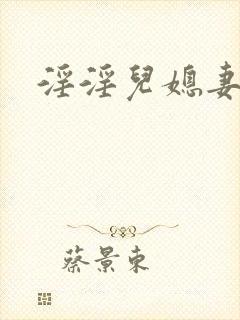 淫淫兒媳妻
蔡景東